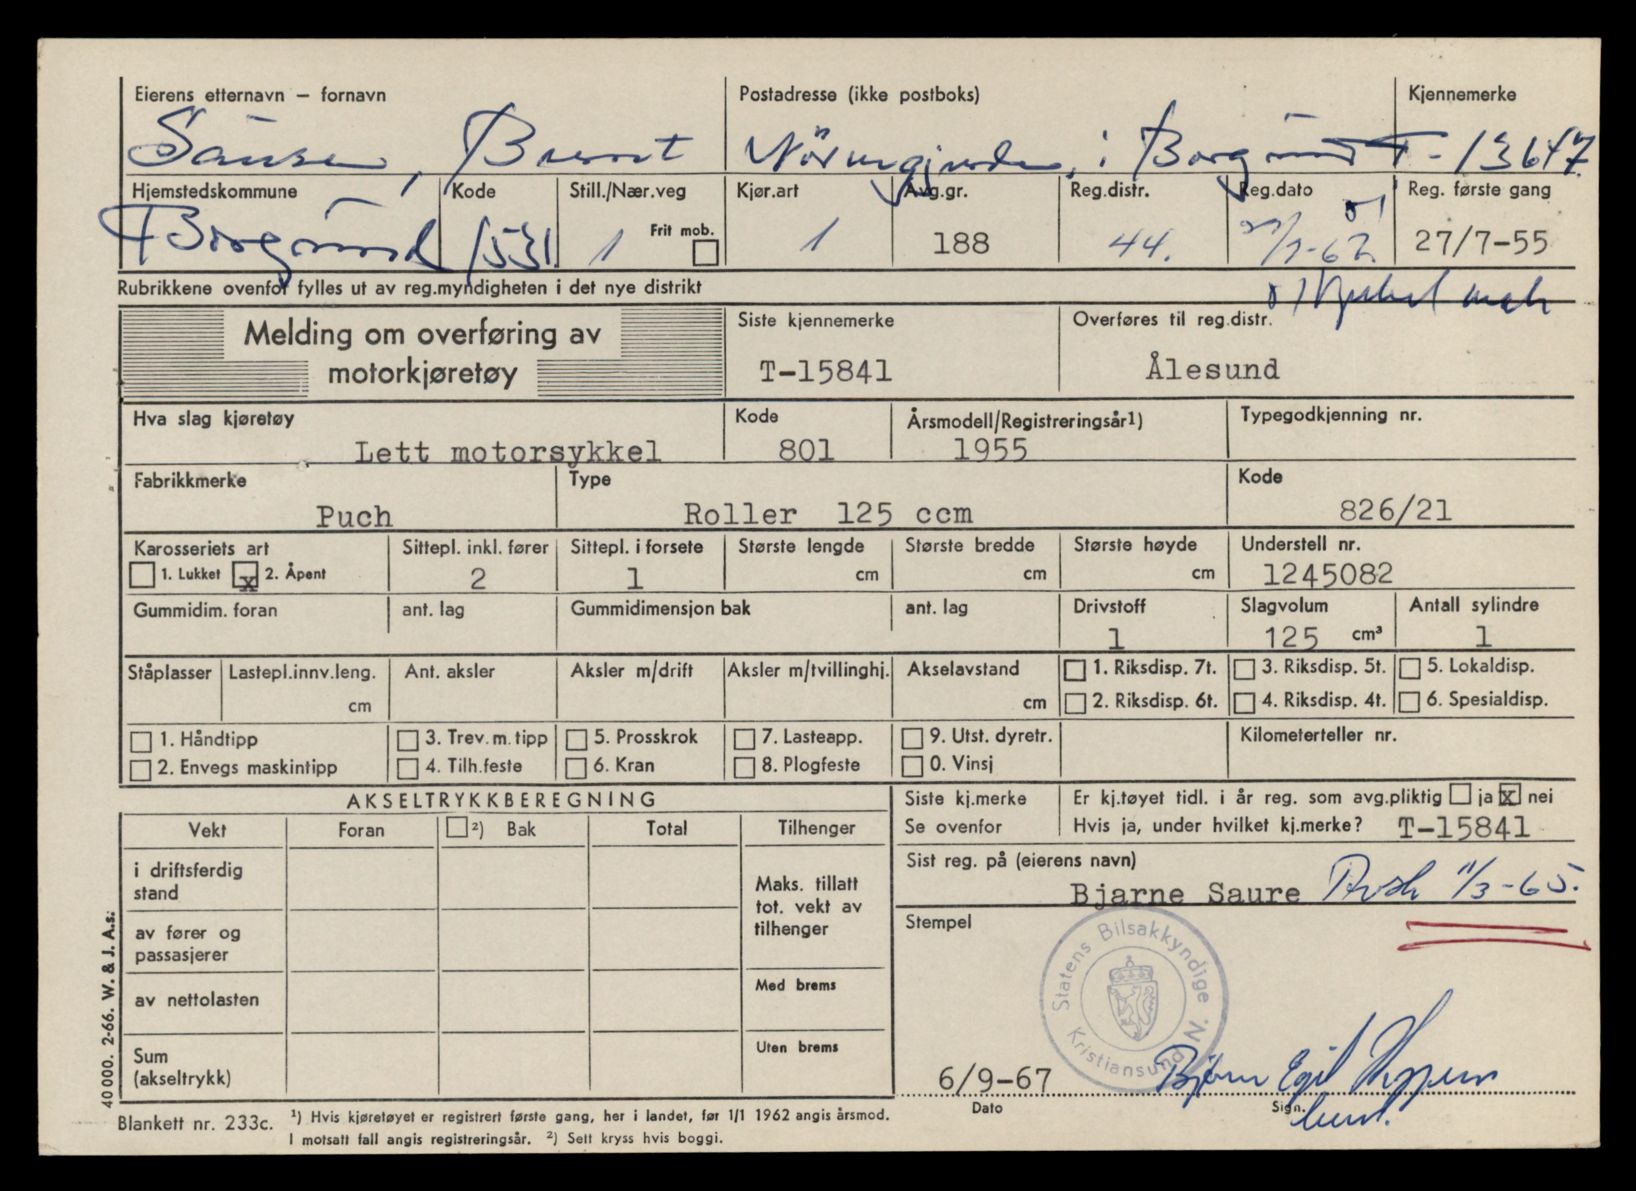 Eierens etternavn – fornavn
Postadresse (ikke postboks)
Kjennemerke
T-13647
Hjemstedskommune
Kode
Still./Nær.veg
Kjør.art
Avg.gr.
Reg.distr.
Reg.dato
Reg. første gang
Borgund
1531
1
Frit mob.
1
188
44.
27/7-55
Rubrikkene ovenfor fylles ut av reg.myndigheten i det nye distrikt
Melding om overføring av
motorkjøretøy
Siste kjennemerke
T-15841
Overføres til reg.distr.
Ålesund
Hva slag kjøretøy
Lett motorsykkel
Kode
801
Årsmodell/Registreringsår1)
1955
Typegodkjenning nr.
Fabrikkmerke
Puch
Type
Roller 125 ccm
Kode
826/21
Karosseriets art
1. Lukket x 2. Åpent
Sittepl. inkl. fører
2
Sittepl. i forsete
1
Største lengde
cm
Største bredde
cm
Største høyde
cm
Understell nr.
1245082
Gummidim. foran
ant. lag
Gummidimensjon bak
ant. lag
Drivstoff
1
Slagvolum
125 cm³
Antall sylindre
1
Ståplasser
Lastepl.innv.leng.
cm
Ant. aksler
Aksler m/drift
Aksler m/tvillinghj.
Akselavstand
cm
1. Riksdisp. 7t.
3. Riksdisp. 5t.
5. Lokaldisp.
2. Riksdisp. 6t.
4. Riksdisp. 4t.
6. Spesialdisp.
1. Håndtipp
3. Trev. m. tipp
5. Prosskrok
7. Lasteapp.
9. Utst. dyretr.
Kilometerteller nr.
2. Envegs maskintipp
4. Tilh.feste
6. Kran
8. Plogfeste
0. Vinsj
AKSELTRYKKBEREGNING
Vekt
Foran
2) Bak
Total
Tilhenger
i driftsferdig
stand
av fører og
passasjerer
av nettolasten
Sum
(akseltrykk)
Maks. tillatt
tot. vekt av
tilhenger
Med brems
Uten brems
Siste kj.merke
Se ovenfor
Er kj.tøyet tidl. i år reg. som avg.pliktig ja x nei
Hvis ja, under hvilket kj.merke? T-15841
Sist reg. på (eierens navn)
Bjarne Saure
11/3-65.
Stempel
Statens Bilsakkyndige
Kristiansund N.
6/9-67
Dato
Sign.
40 000. 2-66. W. & J. A.s.
Blankett nr. 233c.
1) Hvis kjøretøyet er registrert første gang, her i landet, før 1/1 1962 angis årsmod.
I motsatt fall angis registreringsår. 2) Sett kryss hvis boggi.